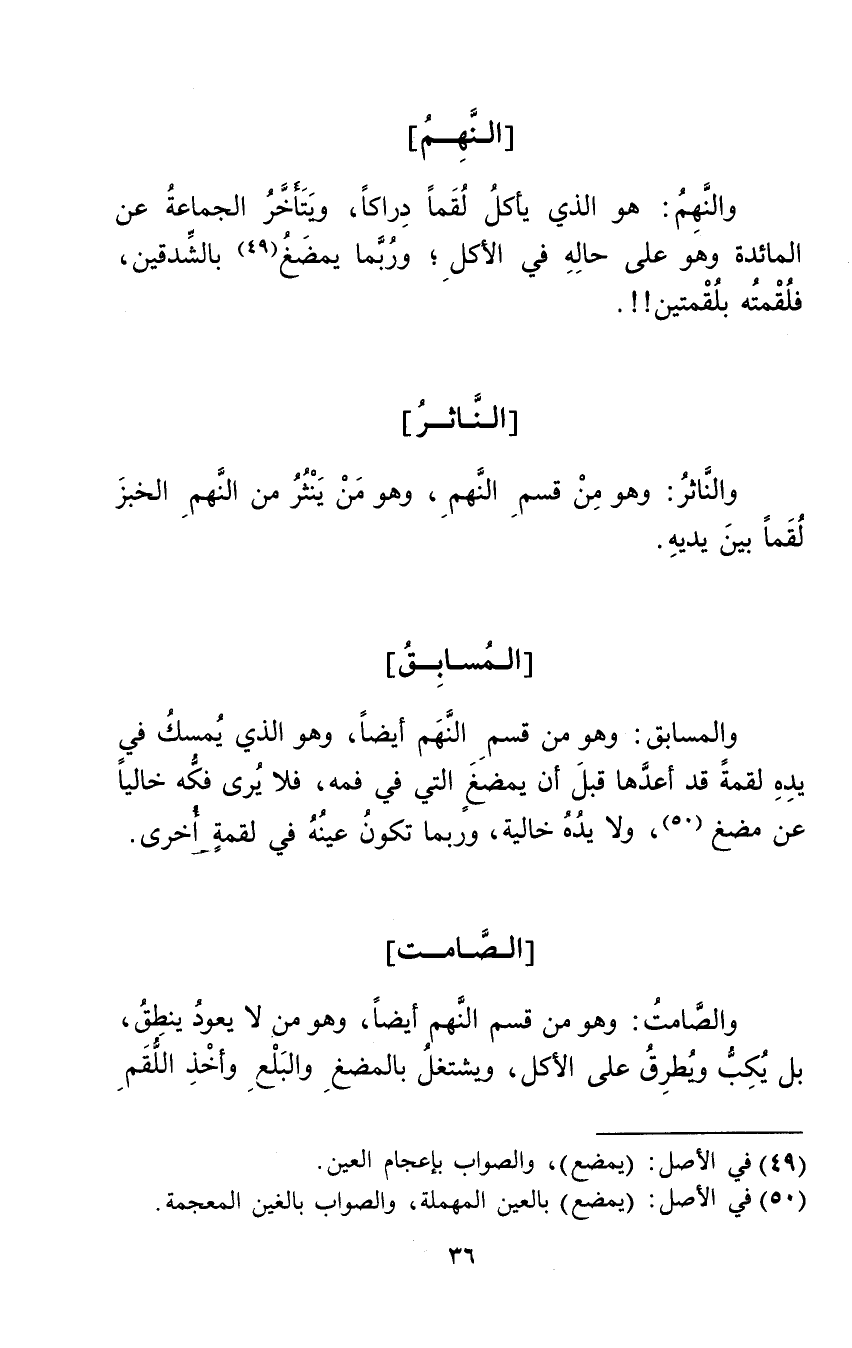 [النَّهِمُ]
والنَّهِمُ: هو الذي يأكلُ لُقَماً دِراكاً، ويَتَأَخَّرُ الجماعةُ عن
المائدة وهو على حالِهِ في الأكلِ؛ ورُبَّما يمضَغُ(٤٩) بالشِّدقين،
فلُقْمتُه بلُقْمتين!!.
[النَّاثرُ]
والنَّاثرُ: وهو مِنْ قسمِ النَّهمِ، وهو مَنْ يَنْثُرُ من النَّهمِ الخبزَ
لُقَماً بينَ يديهِ.
[المُسابِقُ]
والمسابق: وهو من قسمِ النَّهَم أيضاً، وهو الذي يُمسكُ في
يدِهِ لقمةً قد أعدَّها قبلَ أن يمضغَ التي في فمه، فلا يُرى فكُّه خالياً
عن مضغ (٥٠)، ولا يدُهُ خالية، وربما تكونُ عينُهُ في لقمةٍ أُخرى.
[الصَّامت]
والصَّامتُ: وهو من قسم النَّهم أيضاً، وهو من لا يعودُ ينطِقُ،
بل يُكِبُّ ويُطرِقُ على الأكل، ويشتغلُ بالمضغِ والبَلْعِ وأخْذِ اللُّقَمِ
(٤٩) في الأصل: (يمضع)، والصواب بإعجام العين.
(٥٠) في الأصل: (يمضع) بالعين المهملة، والصواب بالغين المعجمة.
٣٦